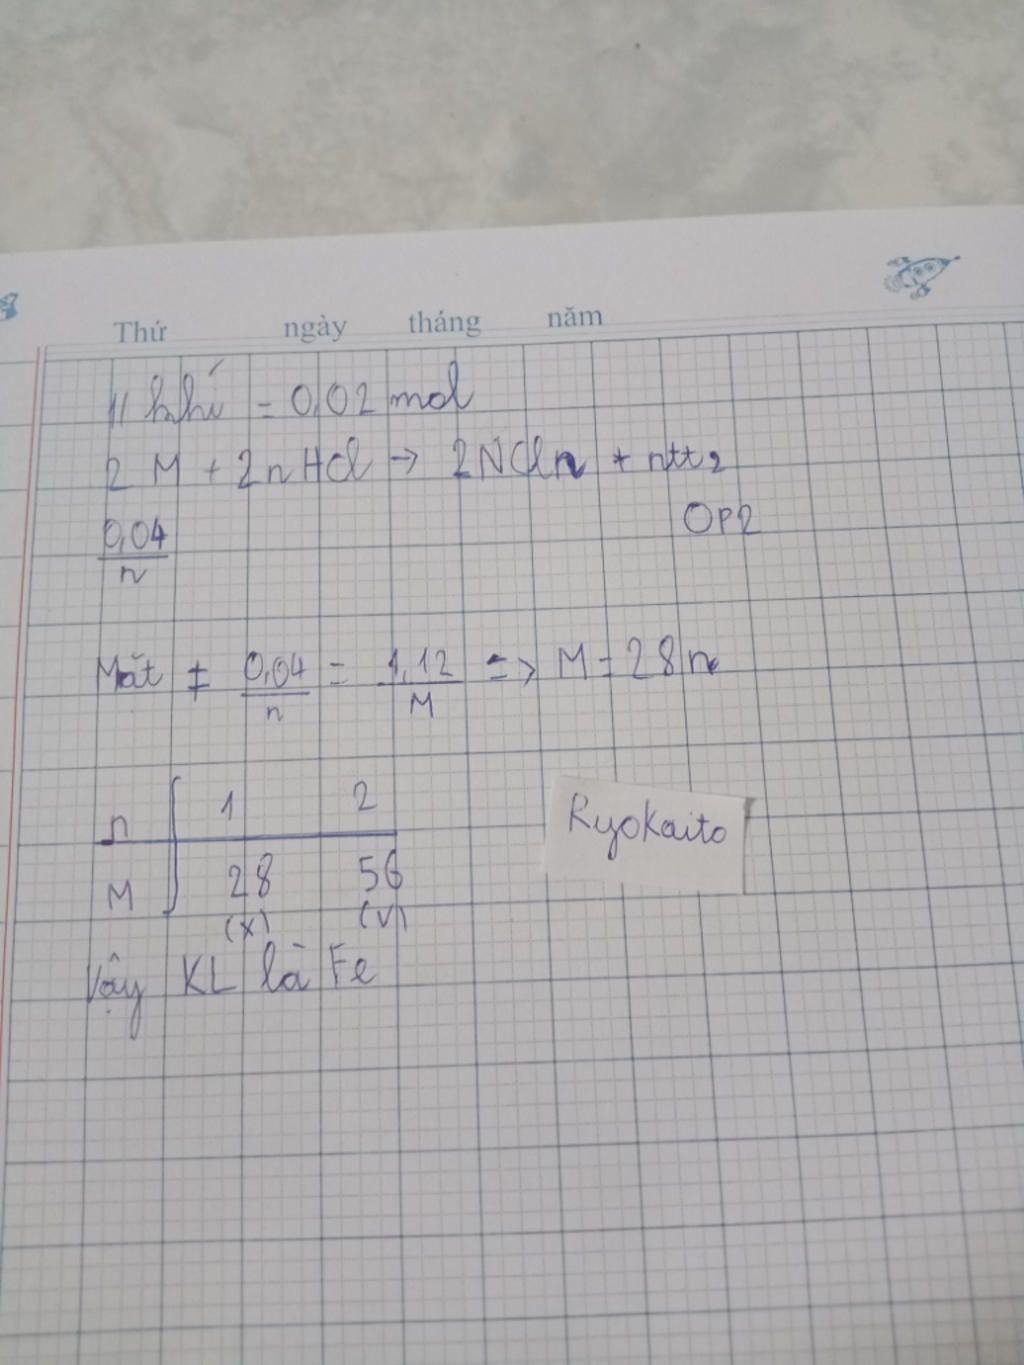 Thứ ngày tháng năm
n khí = 0,02 mol
2 M + 2nHCl → 2NCln + nH2
0,04/n 0,02
Mặt ‡ 0,04/n = 1,12/M => M = 28n
n 1 2
M 28 56
(x) (v)
Ryokaito
Vậy KL là Fe